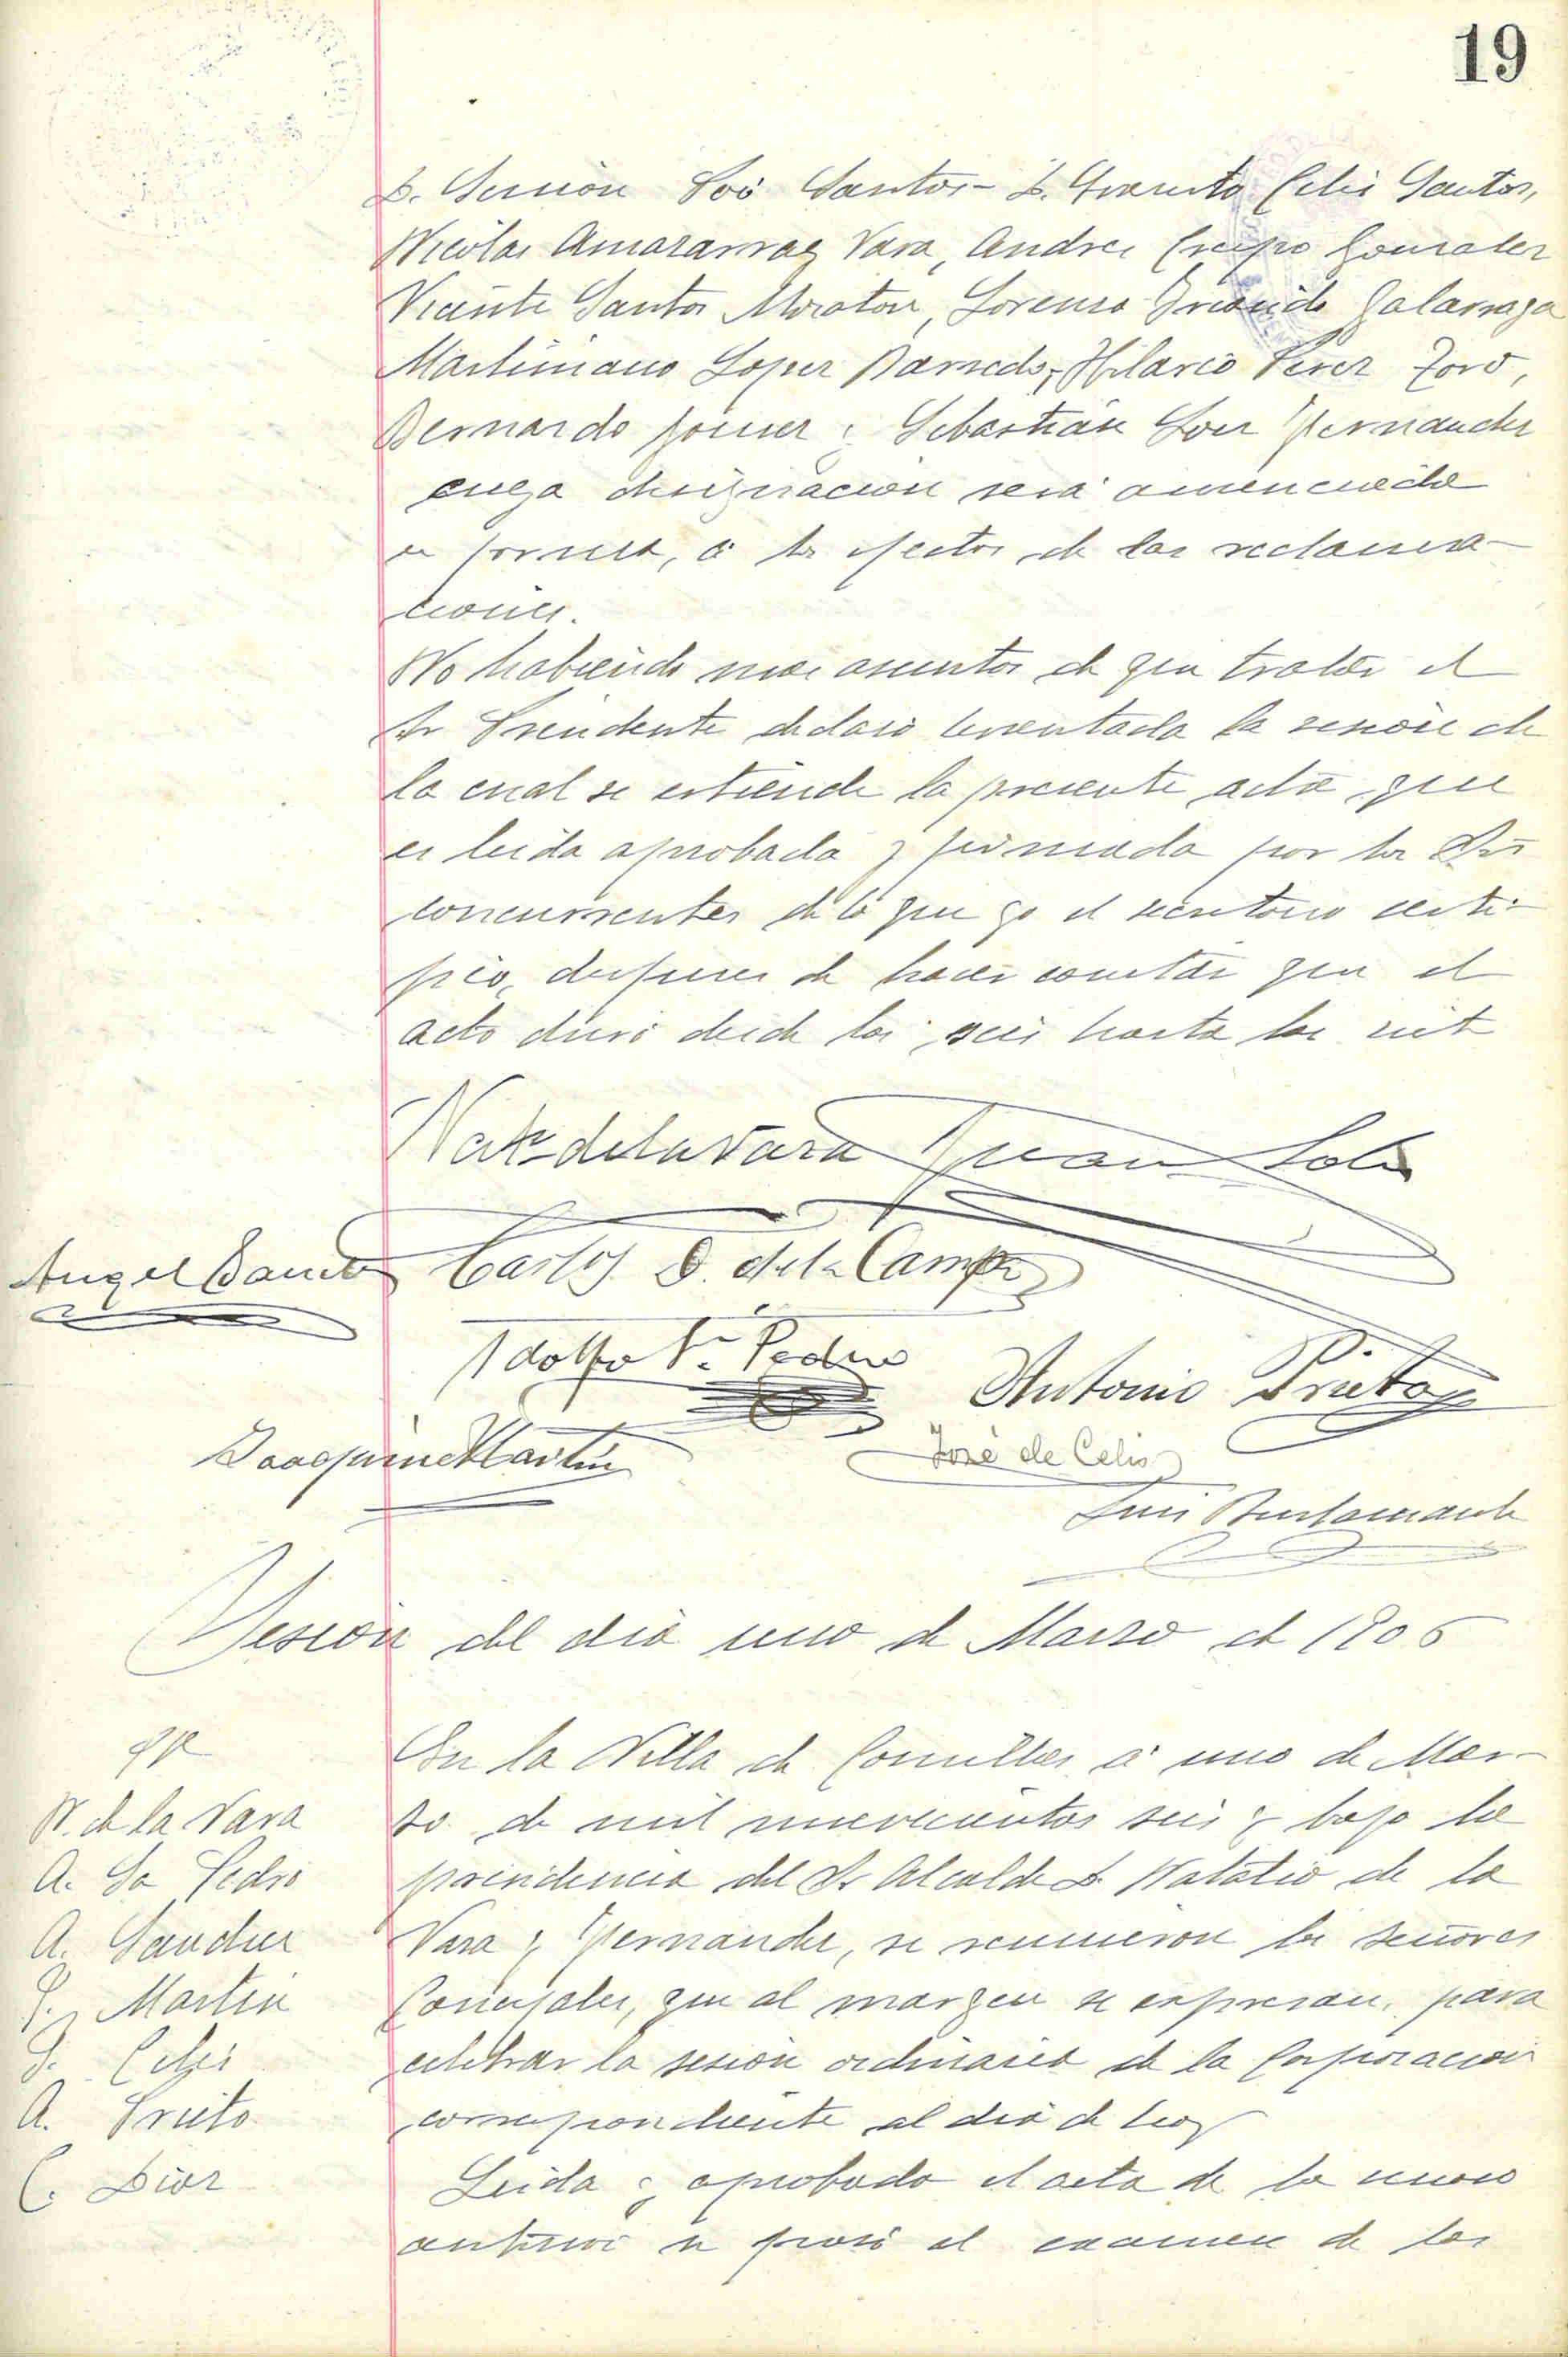 19
D. Simón Santos - D. Celis Santos,
Nicolás Amararraz Vara, Andres Crespo Gonzalez
Vicente Santos Moraton, Lorenzo Galarraga
Martiniano Lopez Barreda, Hilario Perez Toro,
Bernardo Gomez y Sebastián Fernandez
cuya designación será anunciada
en forma, á los efectos de las reclama-
ciones.
No habiendo mas asuntos de que tratar el
Sr Presidente declaró levantada la sesión de
la cual se extiende la presente acta que
es leida aprobada y firmada por los Srs
concurrentes de lo que yo el secretario certi-
fico, despues de hacer constar que el
acto duró desde las seis hasta las siete
Nat. de la Vara Juan Solis
Angel Sanchez Carlos D. de la Campa
Adolfo Sn. Pedro
Antonio Prieto
Joaquin Martin
José de Celis
Luis Bustamante
Sesión del dia uno de Marzo de 1906
PP
N. de la Vara
A. Sn Pedro
A. Sanchez
J. Martin
J. Celis
A. Prieto
C. Diaz
En la Villa de Comillas á uno de Mar-
zo de mil novecientos seis y bajo la
presidencia del Sr Alcalde D. Natalio de la
Vara y Fernandez, se reunieron los señores
Concejales, que al margen se expresan, para
celebrar la sesión ordinaria de la Corporación
correspondiente al dia de hoy
Leida y aprobada el acta de la sesión
anterior se pasó al examen de los